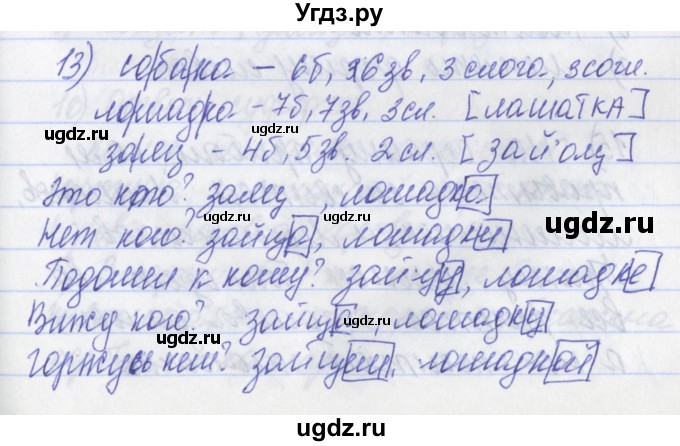 Угдз.ру
13) со/ба/ка – 6б, 6зв, 3 слога, 3согл.
ло/шад/ка – 7б, 7зв, 3сл. [лашаткА]
за/яц – 4б, 5зв. 2сл. [зай'эц]
Это кто? заяц, лошадка
Нет кого? зайца, лошадки
Подошел к кому? зайцу, лошадке
Вижу кого? зайца, лошадку
горжусь кем? зайцем, лошадкой
ugdz.ru
ugdz.ru
ugdz.ru
ugdz.ru
ugdz.ru
ugdz.ru
ugdz.ru
ugdz.ru
ugdz.ru
ugdz.ru
ugdz.ru